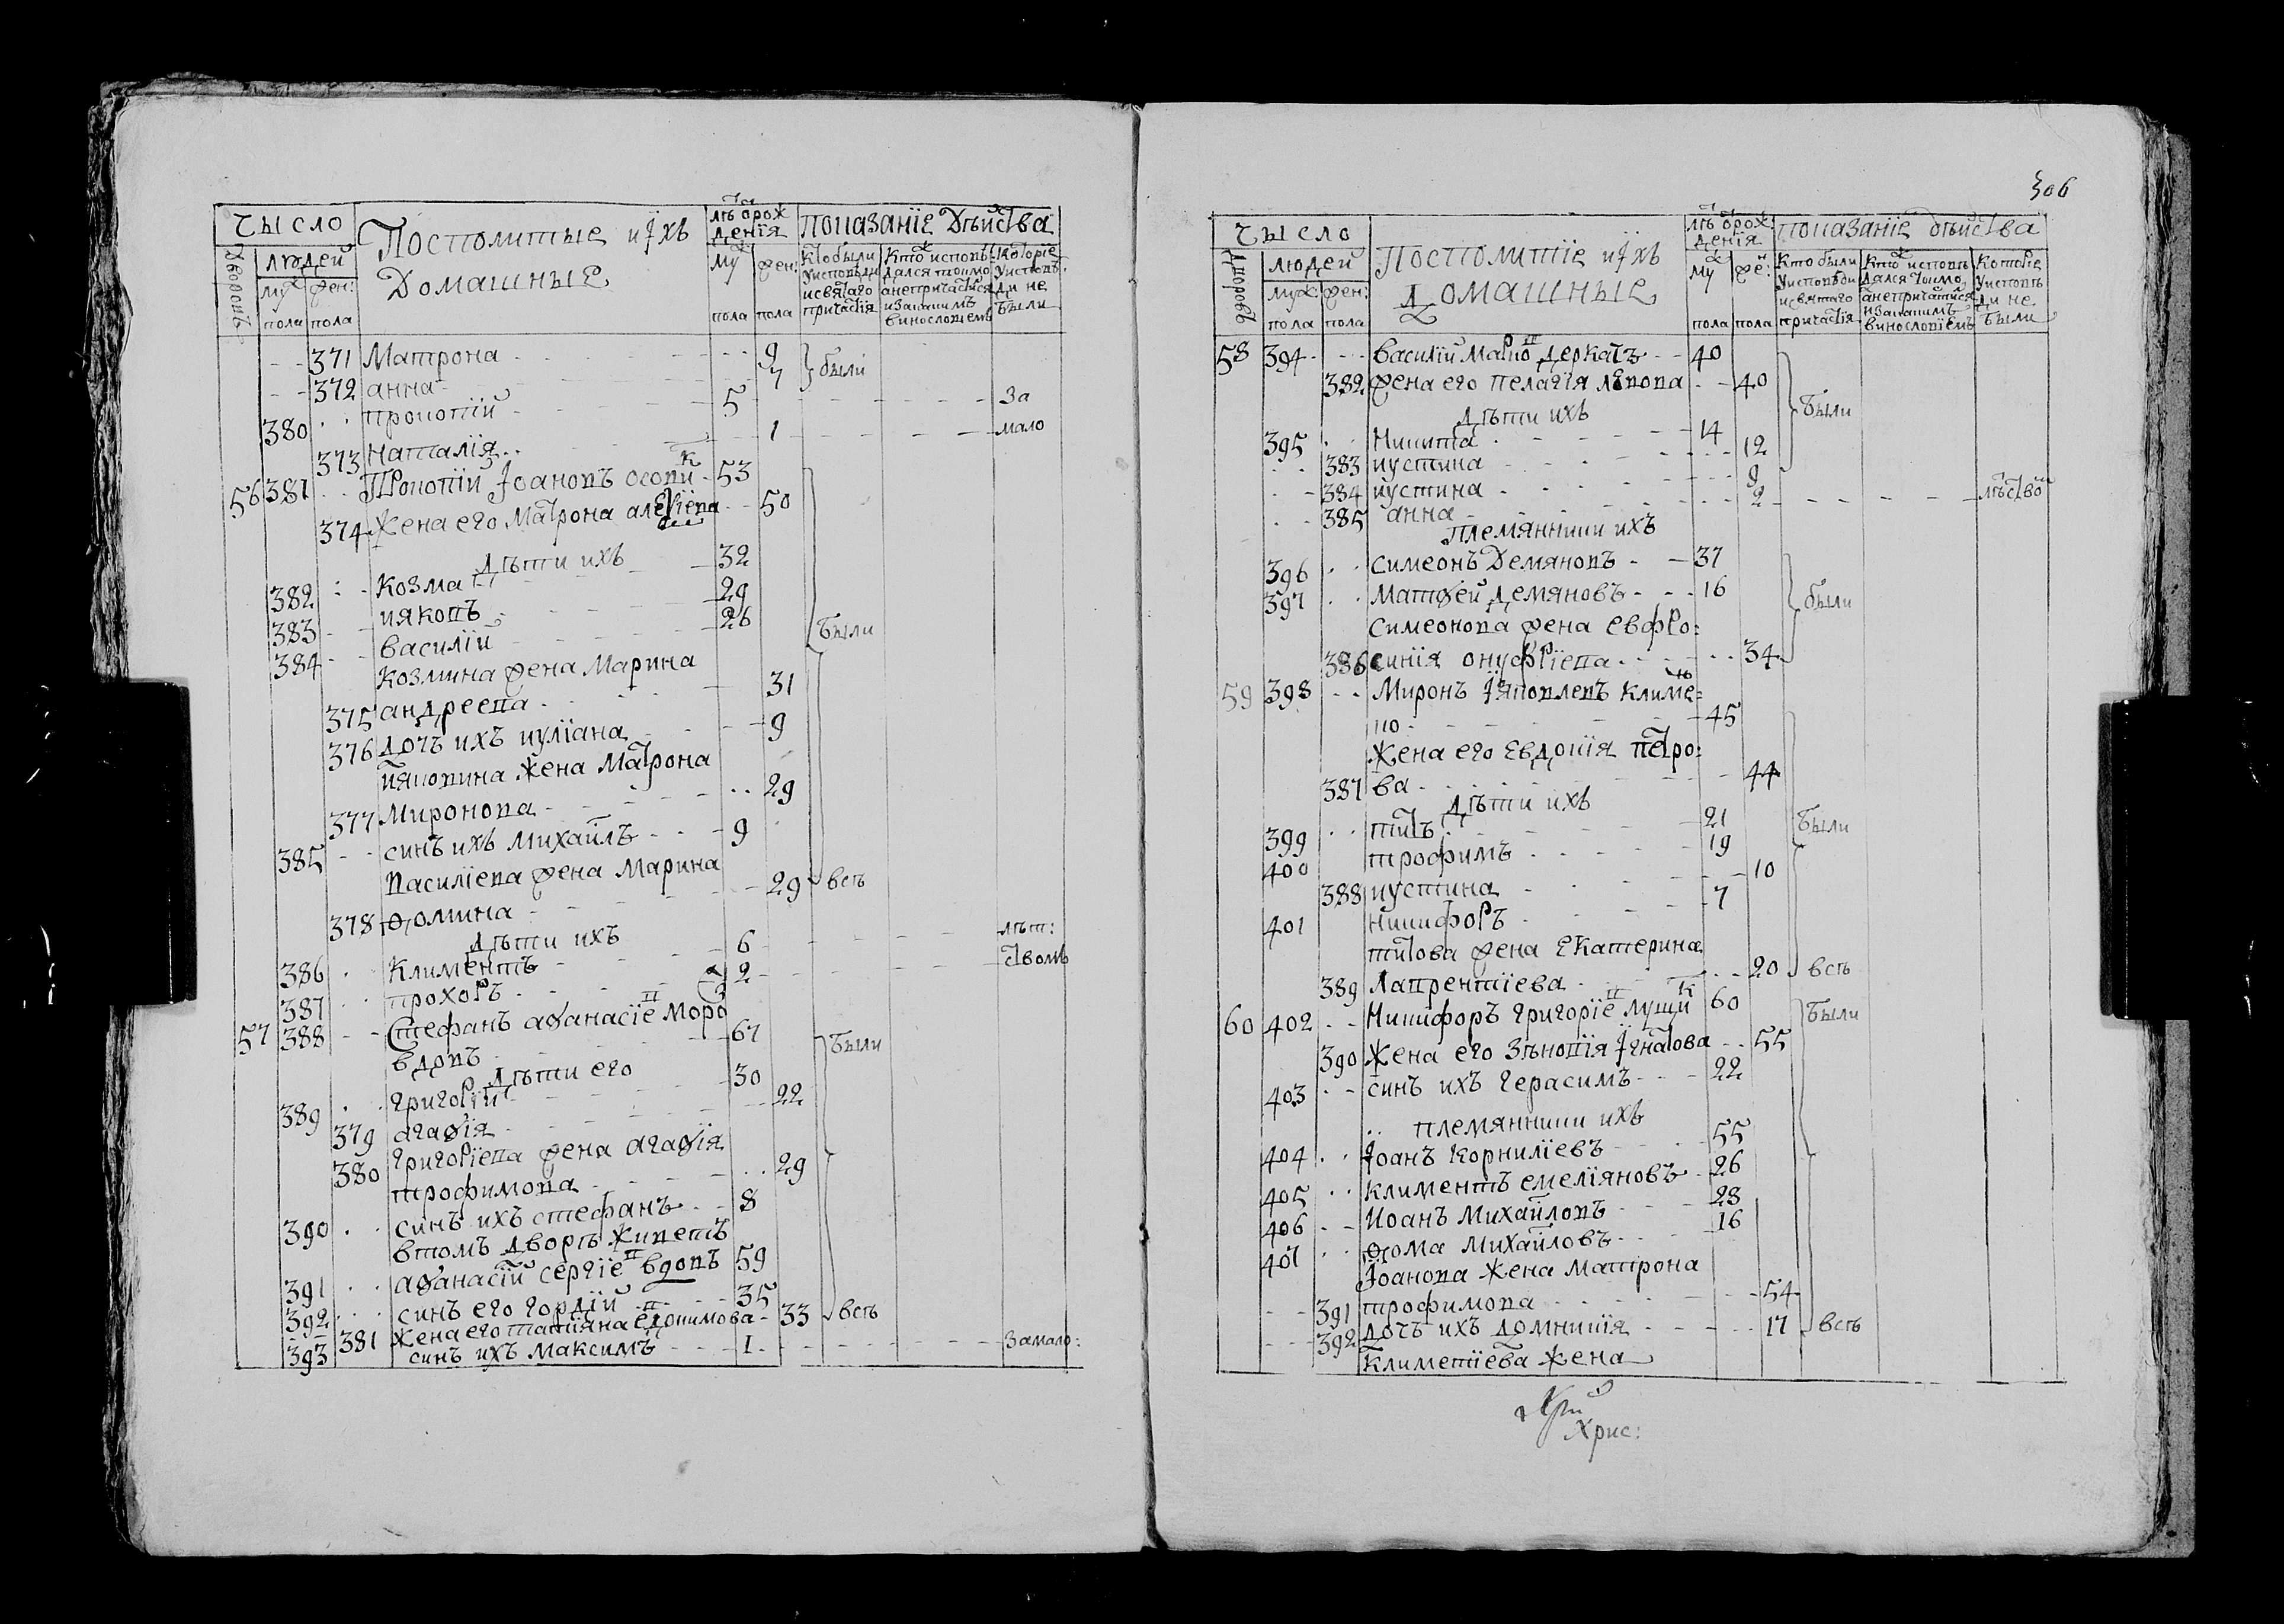 Чысло
Постолитые иіхъ
Домашные
лѣ орож
денія
показаніе Дѣйства
Дворовъ
людей
муж
пола
жен:
пола
муж
пола
жен:
пола
Кто были
уисповѣди
исвятаго
причастія
Кто исповѣ
дался тоимо
анепричастися
изакакимъ
винословіемъ
Которіе
уисповѣ
ди не
были
371 Матрона 9 были
372 анна 7
380 прокопій 5 за
373 Наталія 1 мало
56 381 Прокопій Іоановъ осови к 53
374 Жена его Матрона алекіева 50
дѣти ихъ
382 Козма 32
383 иаковъ 29
384 василіи 26 были
козмина жена Марина
375 андреева 31
376 дочъ ихъ иуліана 9
иаковина жена Матрона
377 Миронова 29
385 синъ ихъ михайлъ 9
василіева жена Марина
378 фомина 29 всѣ
дѣти ихъ
386 Климентъ 6 лѣт:
387 прохоръ 2 ством
57 388 Стефанъ афанасіе
вдовъ 67 были
дѣти его
389 григорій 30
379 агафія 22
григоріева жена агафія
380 трофимова 29
390 синъ ихъ стефанъ 8
втомъ дворѣ живетъ
391 афанасій сергіе вдовъ 59
392 синъ его гордій 35
381 жена его татіяна евдокимова 33 всѣ
393 синъ ихъ максимъ 1 замало:
306
Чысло
Постолитіе иіхъ
Домашные
лѣ орож
денія
показаніе дѣйства
Дворовъ
людей
муж:
пола
жен:
пола
муж
пола
жен
пола
Кто были
уисповѣди
исвятаго
причастія
Кто исповѣ
дался тоимо
анепричастися
изакакимъ
винословіемъ
Которіе
уисповѣ
ди не
были
58 394 василій марко деркачъ 40
382 жена его пелагія левова 40
дѣти ихъ были
395 Никита 14
383 иустина 12
384 иустина 9
385 анна 2 лѣством
племянники ихъ
396 симеонъ Демяновъ 37
397 матфей демяновъ 16 были
симеонова жена евфро:
386 синія онуфріева 34
59 398 Миронъ іяковлевъ климе=
но 45
жена его Евдокія петро:
387 ва 44
дѣти ихъ
399 титъ 21 были
400 трофимъ 19
388 иустина 10
401 никифоръ 7
титова жена Екатерина
389 Лаврентіева 20 всѣ
60 402 Никифоръ григоріе лущик 60 были
390 Жена его Зѣновія Ігнатова 55
403 синъ ихъ герасимъ 22
племянники ихъ
404 Іоанъ корниліевъ 55
405 климентъ емеліяновъ 26
406 Иоанъ михайловъ 28
407 фома михайловъ 16
Іоанова жена матрона
391 трофимова 54
392 дочъ ихъ домникія 17 всѣ
климетіева жена
Хрис: